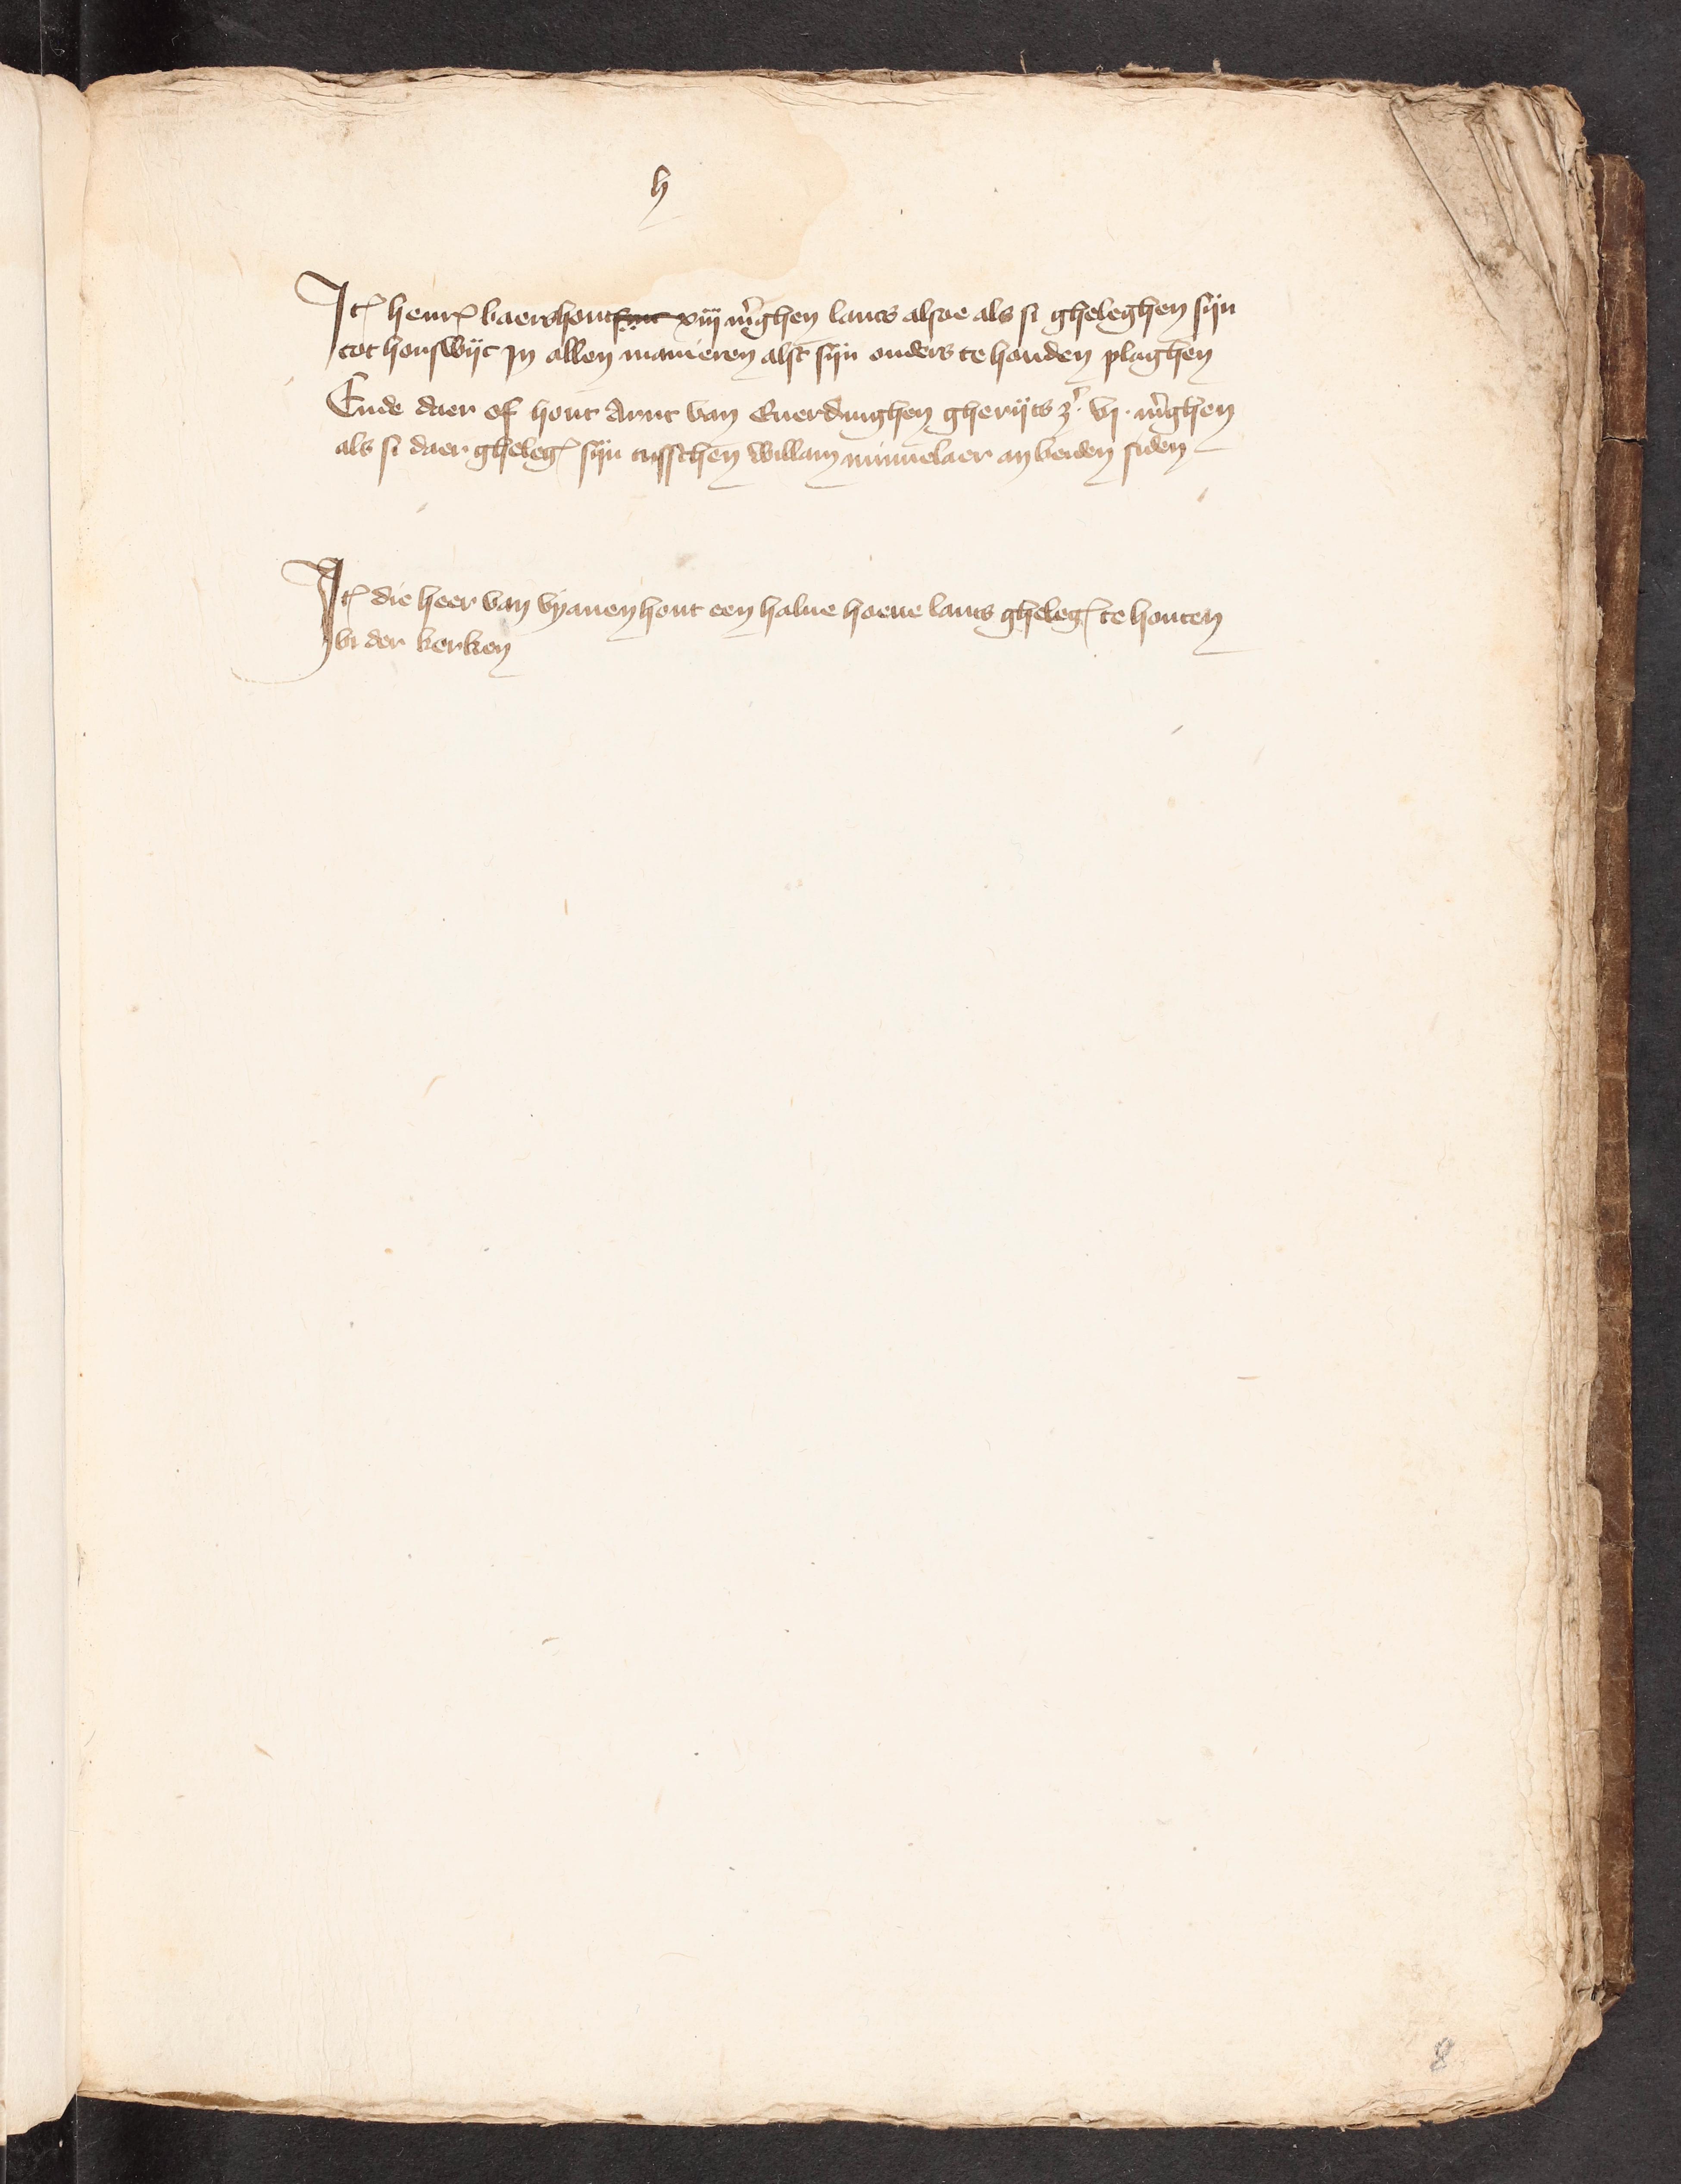 h
It henr baers hout sint xiij m'ghen lants alsoe als si gheleghen sijn
tot honswijc in allen manieren alst sijn ouders te houden plaghen
Ende daer of hout Arnt van Euerdinghen gherijts z' · vj · m'ghen
als si daer gheleg sijn tusschen willam minnelaer an beiden siden
It die heer van vyanen hout een halue hoeue lants gheleg te houten
bi der kerken
8